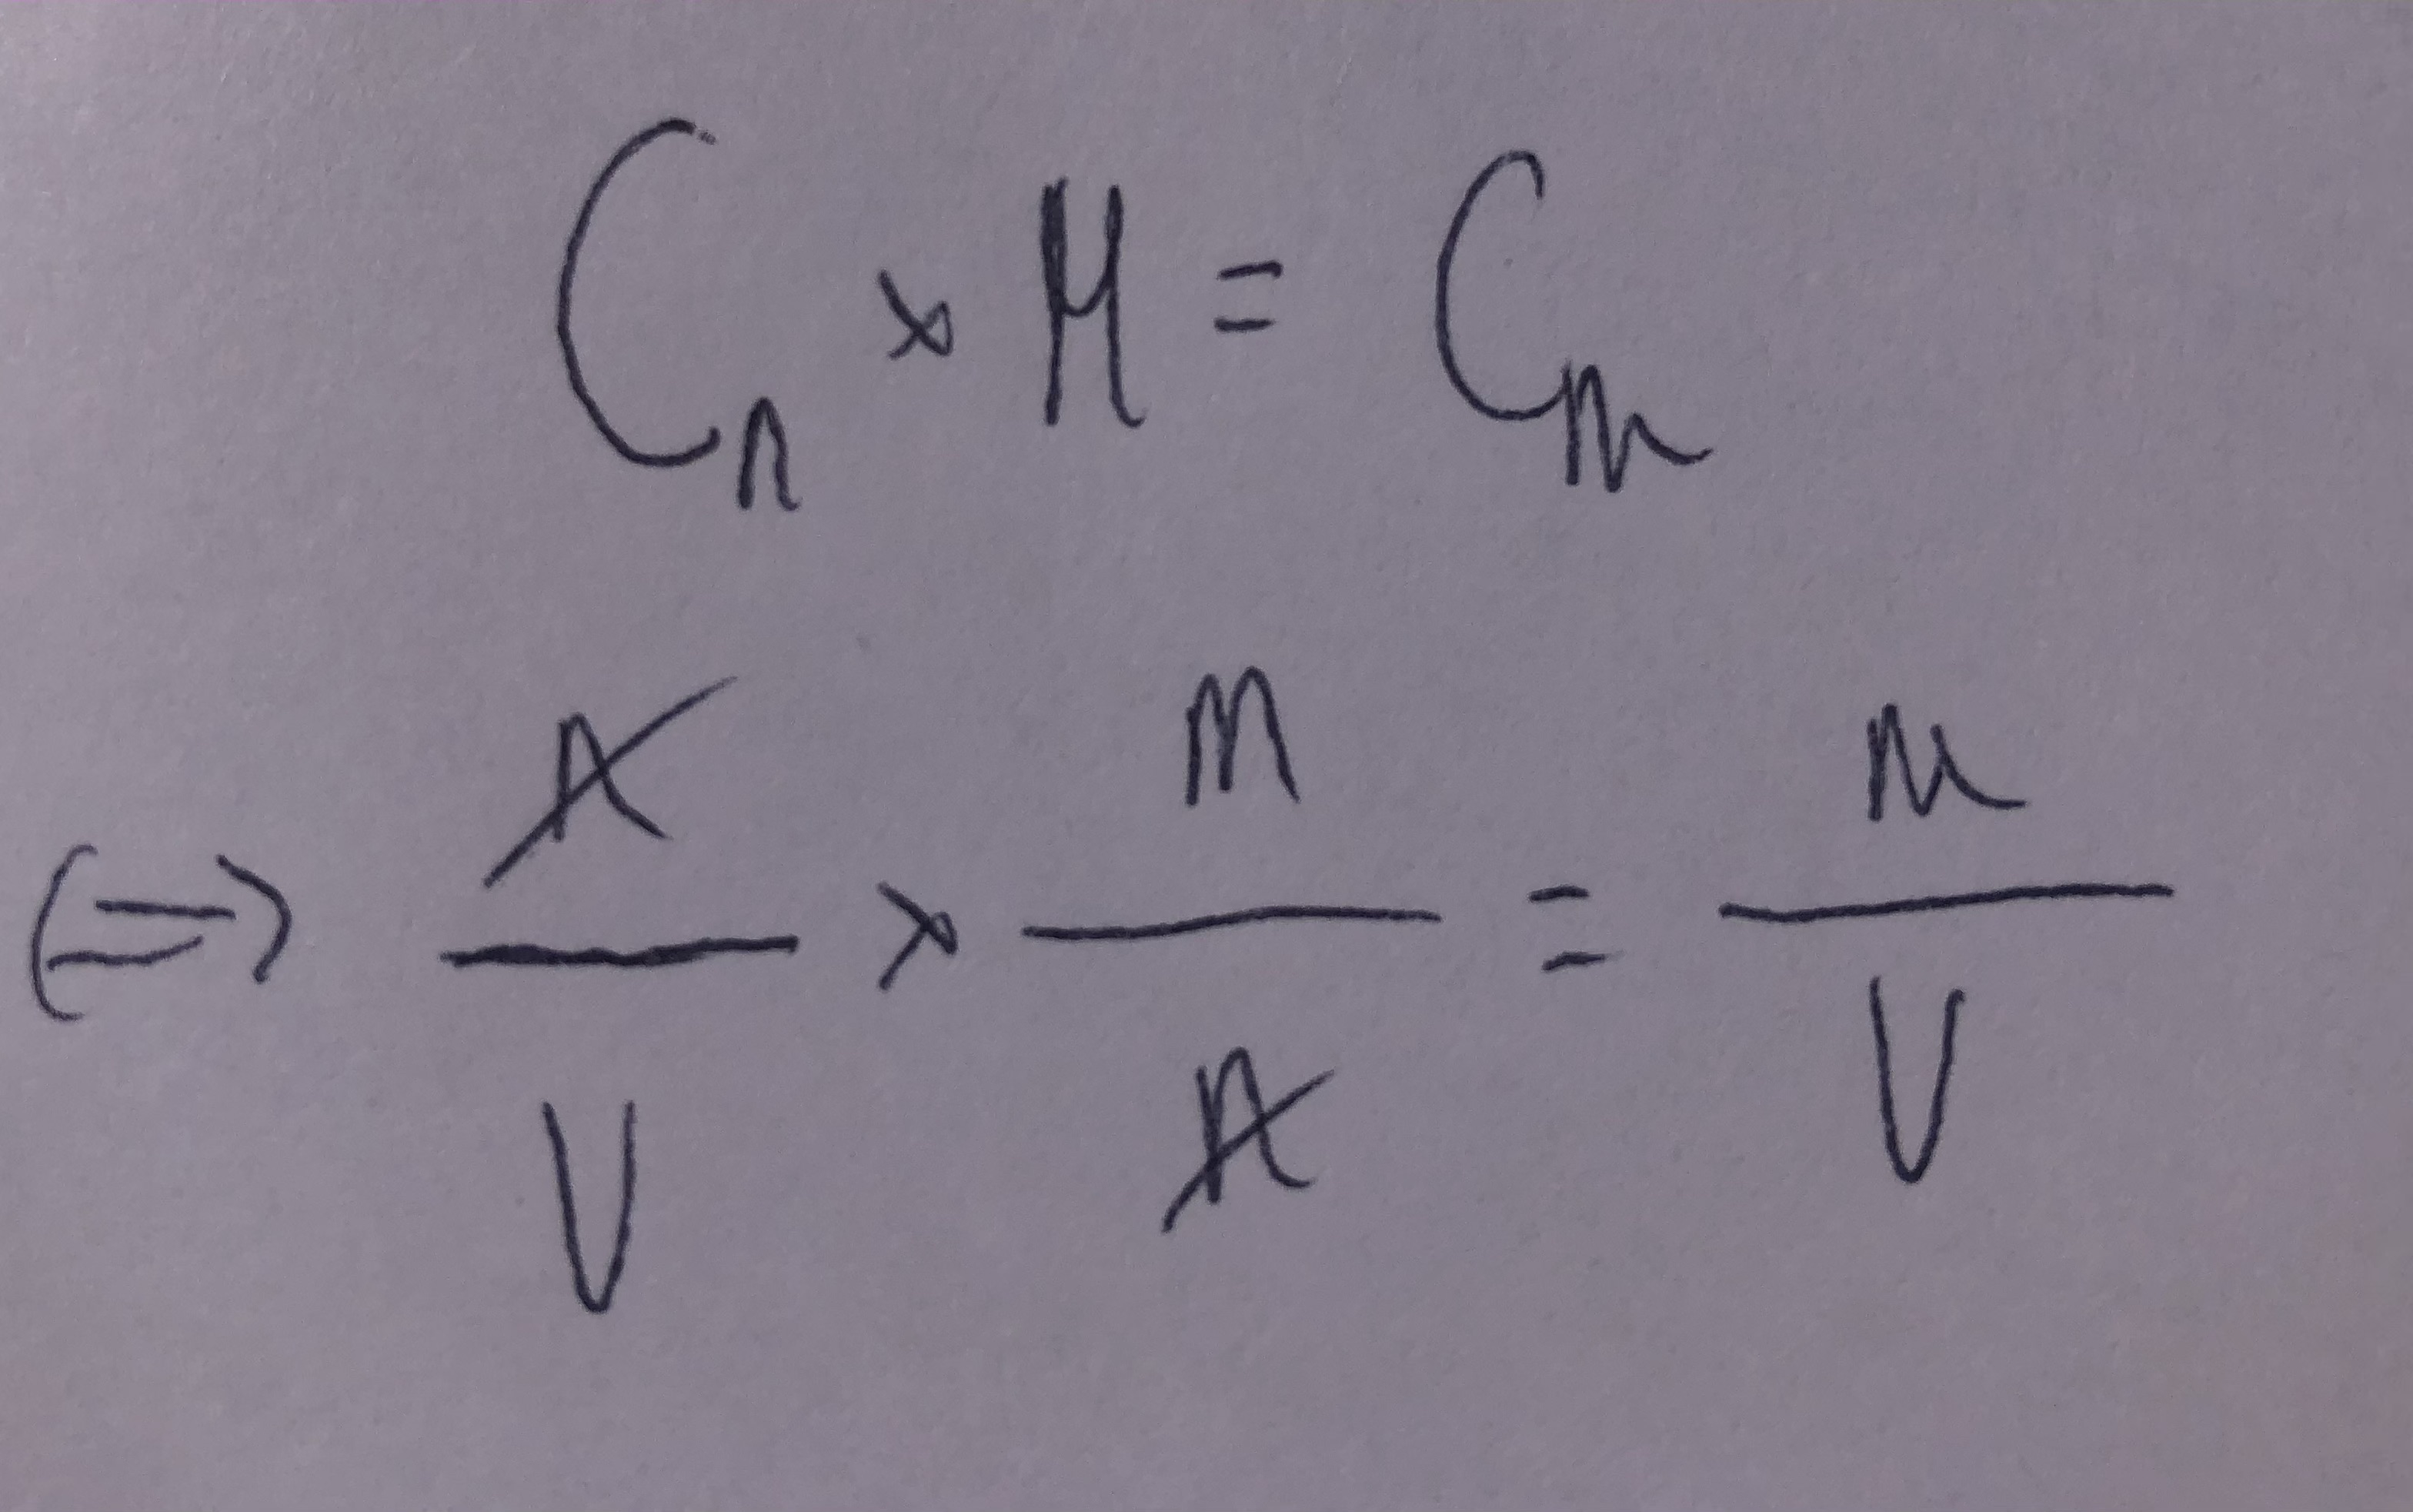 Cn × M = Cm
⇔ n/V × m/n = m/V